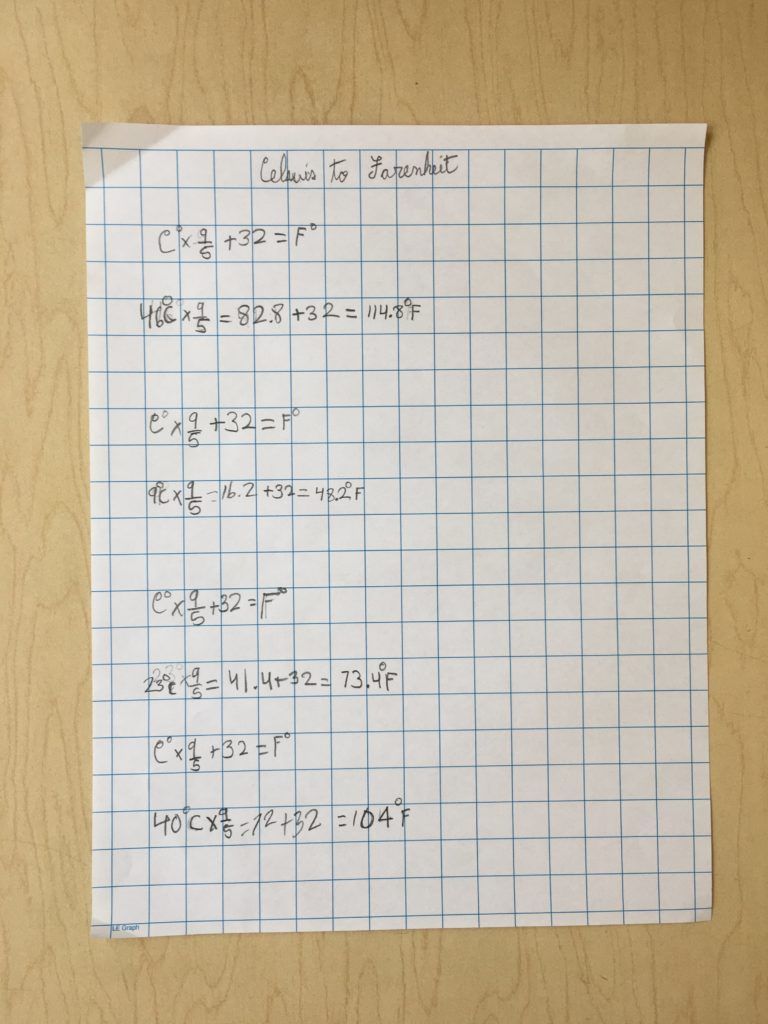 Celsuis to Farenheit
C° × 9/5 + 32 = F°
46°C × 9/5 = 82.8 + 32 = 114.8°F
C° × 9/5 + 32 = F°
9°C × 9/5 = 16.2 + 32 = 48.2°F
C° × 9/5 + 32 = F°
23°C × 9/5 = 41.4 + 32 = 73.4°F
C° × 9/5 + 32 = F°
40°C × 9/5 = 72 + 32 = 104°F
LE Graph